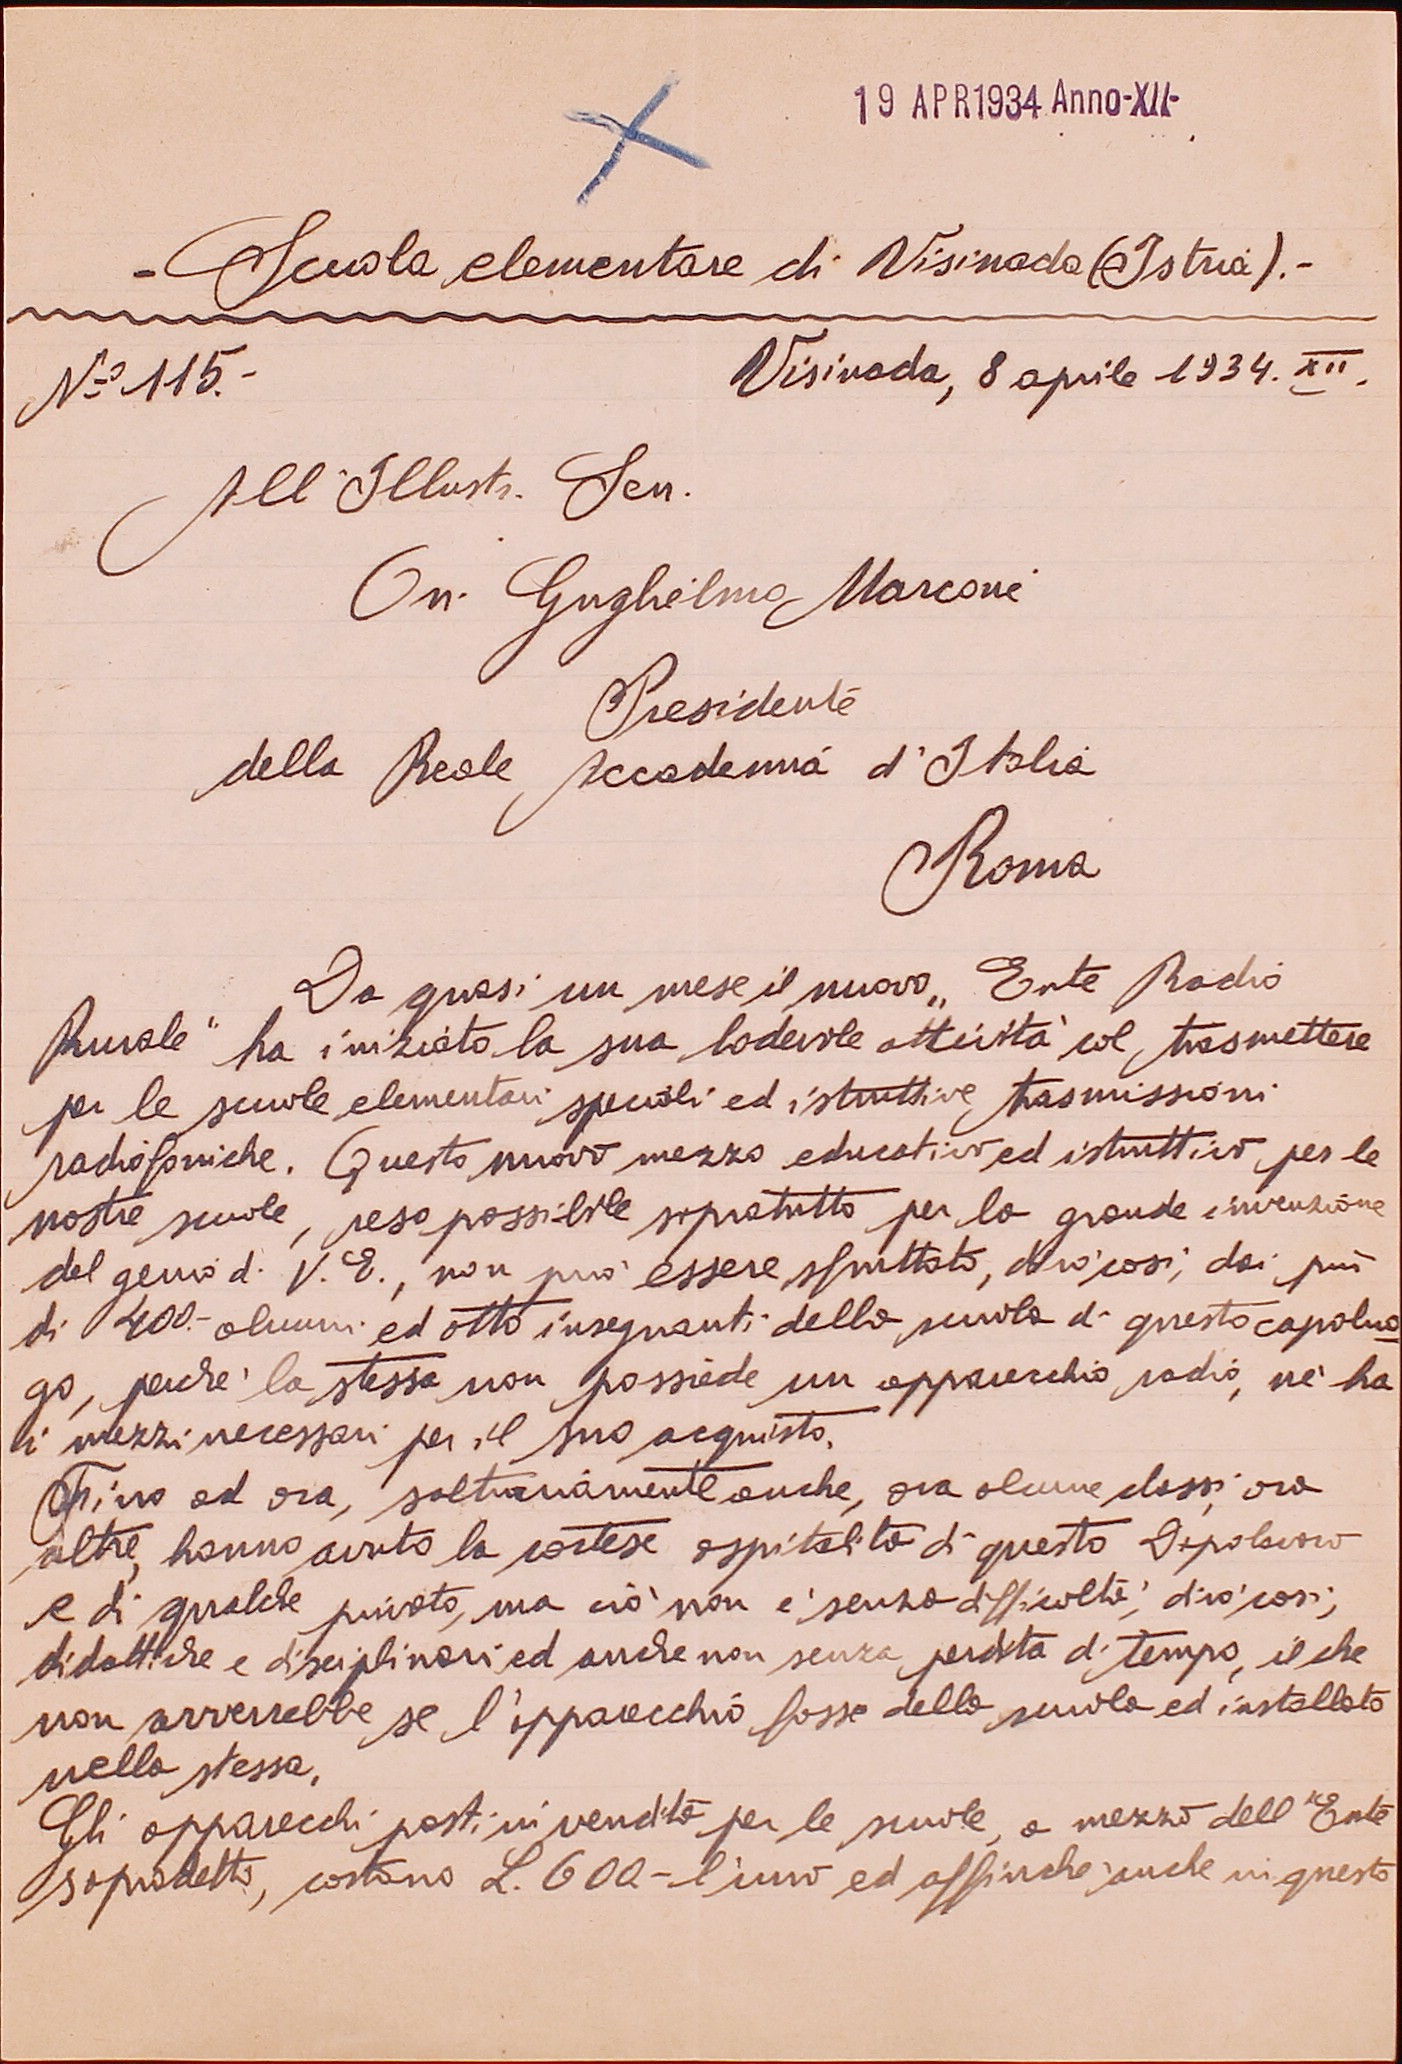 19 APR 1934 Anno-XII-
- Scuola elementare di Visinada (Istria).-
No 115.-
Visinada, 8 aprile 1934. XII.
All'Illustr. Sen.
On. Guglielmo Marconi
Presidente
della Reale Accademia d'Italia
Roma
Da quasi un mese il nuovo „Ente Radio
Rurale" ha iniziato la sua lodevole attività col trasmettere
per le scuole elementari speciali ed istruttive trasmissioni
radiofoniche. Questo nuovo mezzo educativo ed istruttivo per le
nostre scuole, reso possibile sopratutto per la grande invenzione
del genio di V. E., non può essere sfruttato, dirò così, dai più
di 400.- alunni ed otto insegnanti della scuola di questo capoluo
go, perchè la stessa non possiede un apparecchio radio, nè ha
i mezzi necessari per il suo acquisto.
Fino ad ora, saltuariamente anche, ora alcune classi, ora
altre, hanno avuto la cortese ospitalità di questo Dopolavoro
e di qualche privato, ma ciò non è senza difficoltà, dirò così,
didattiche e disciplinari ed anche non senza perdita di tempo, il che
non avverrebbe se l'apparecchio fosse della scuola ed installato
nella stessa.
Gli apparecchi posti in vendita per le scuole, a mezzo dell'"Ente
sopradetto, costano L. 600.- l'uno ed affinchè anche in questa